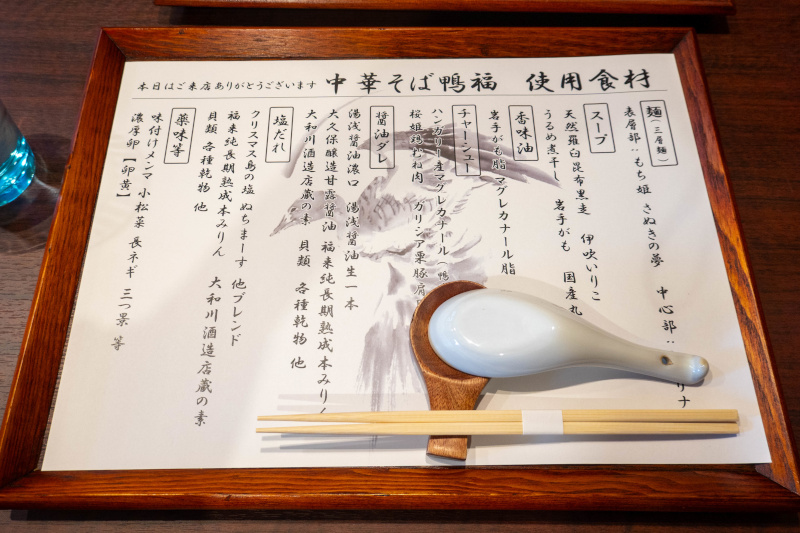 本日はご来店ありがとうございます 中華そば鴨福 使用食材
麺(三層麺)
表層部:もち姫 きぬきの夢 中心部: リナ
スープ
天然羅臼昆布黒走 伊吹いりこ
うるめ煮干し 岩手がも 国産丸
香味油
岩手がも脂 マグレカナール脂
チャーシュー
ハンガリー産マグレカナール(鴨
桜姫鶏むね肉 ガリシア栗豚肩
醤油ダレ
湯浅醤油濃口 湯浅醤油生一本
大久保醸造甘露醤油 福来純長期熟成本みりん
大和川酒造店蔵の素 貝類 各種乾物 他
塩だれ
クリスマス島の塩 ぬちまーす 他ブレンド
福来純長期熟成本みりん 大和川酒造店蔵の素
貝類 各種乾物 他
薬味等
味付けメンマ 小松菜 長ネギ 三つ景 等
濃厚卵【卵黄】